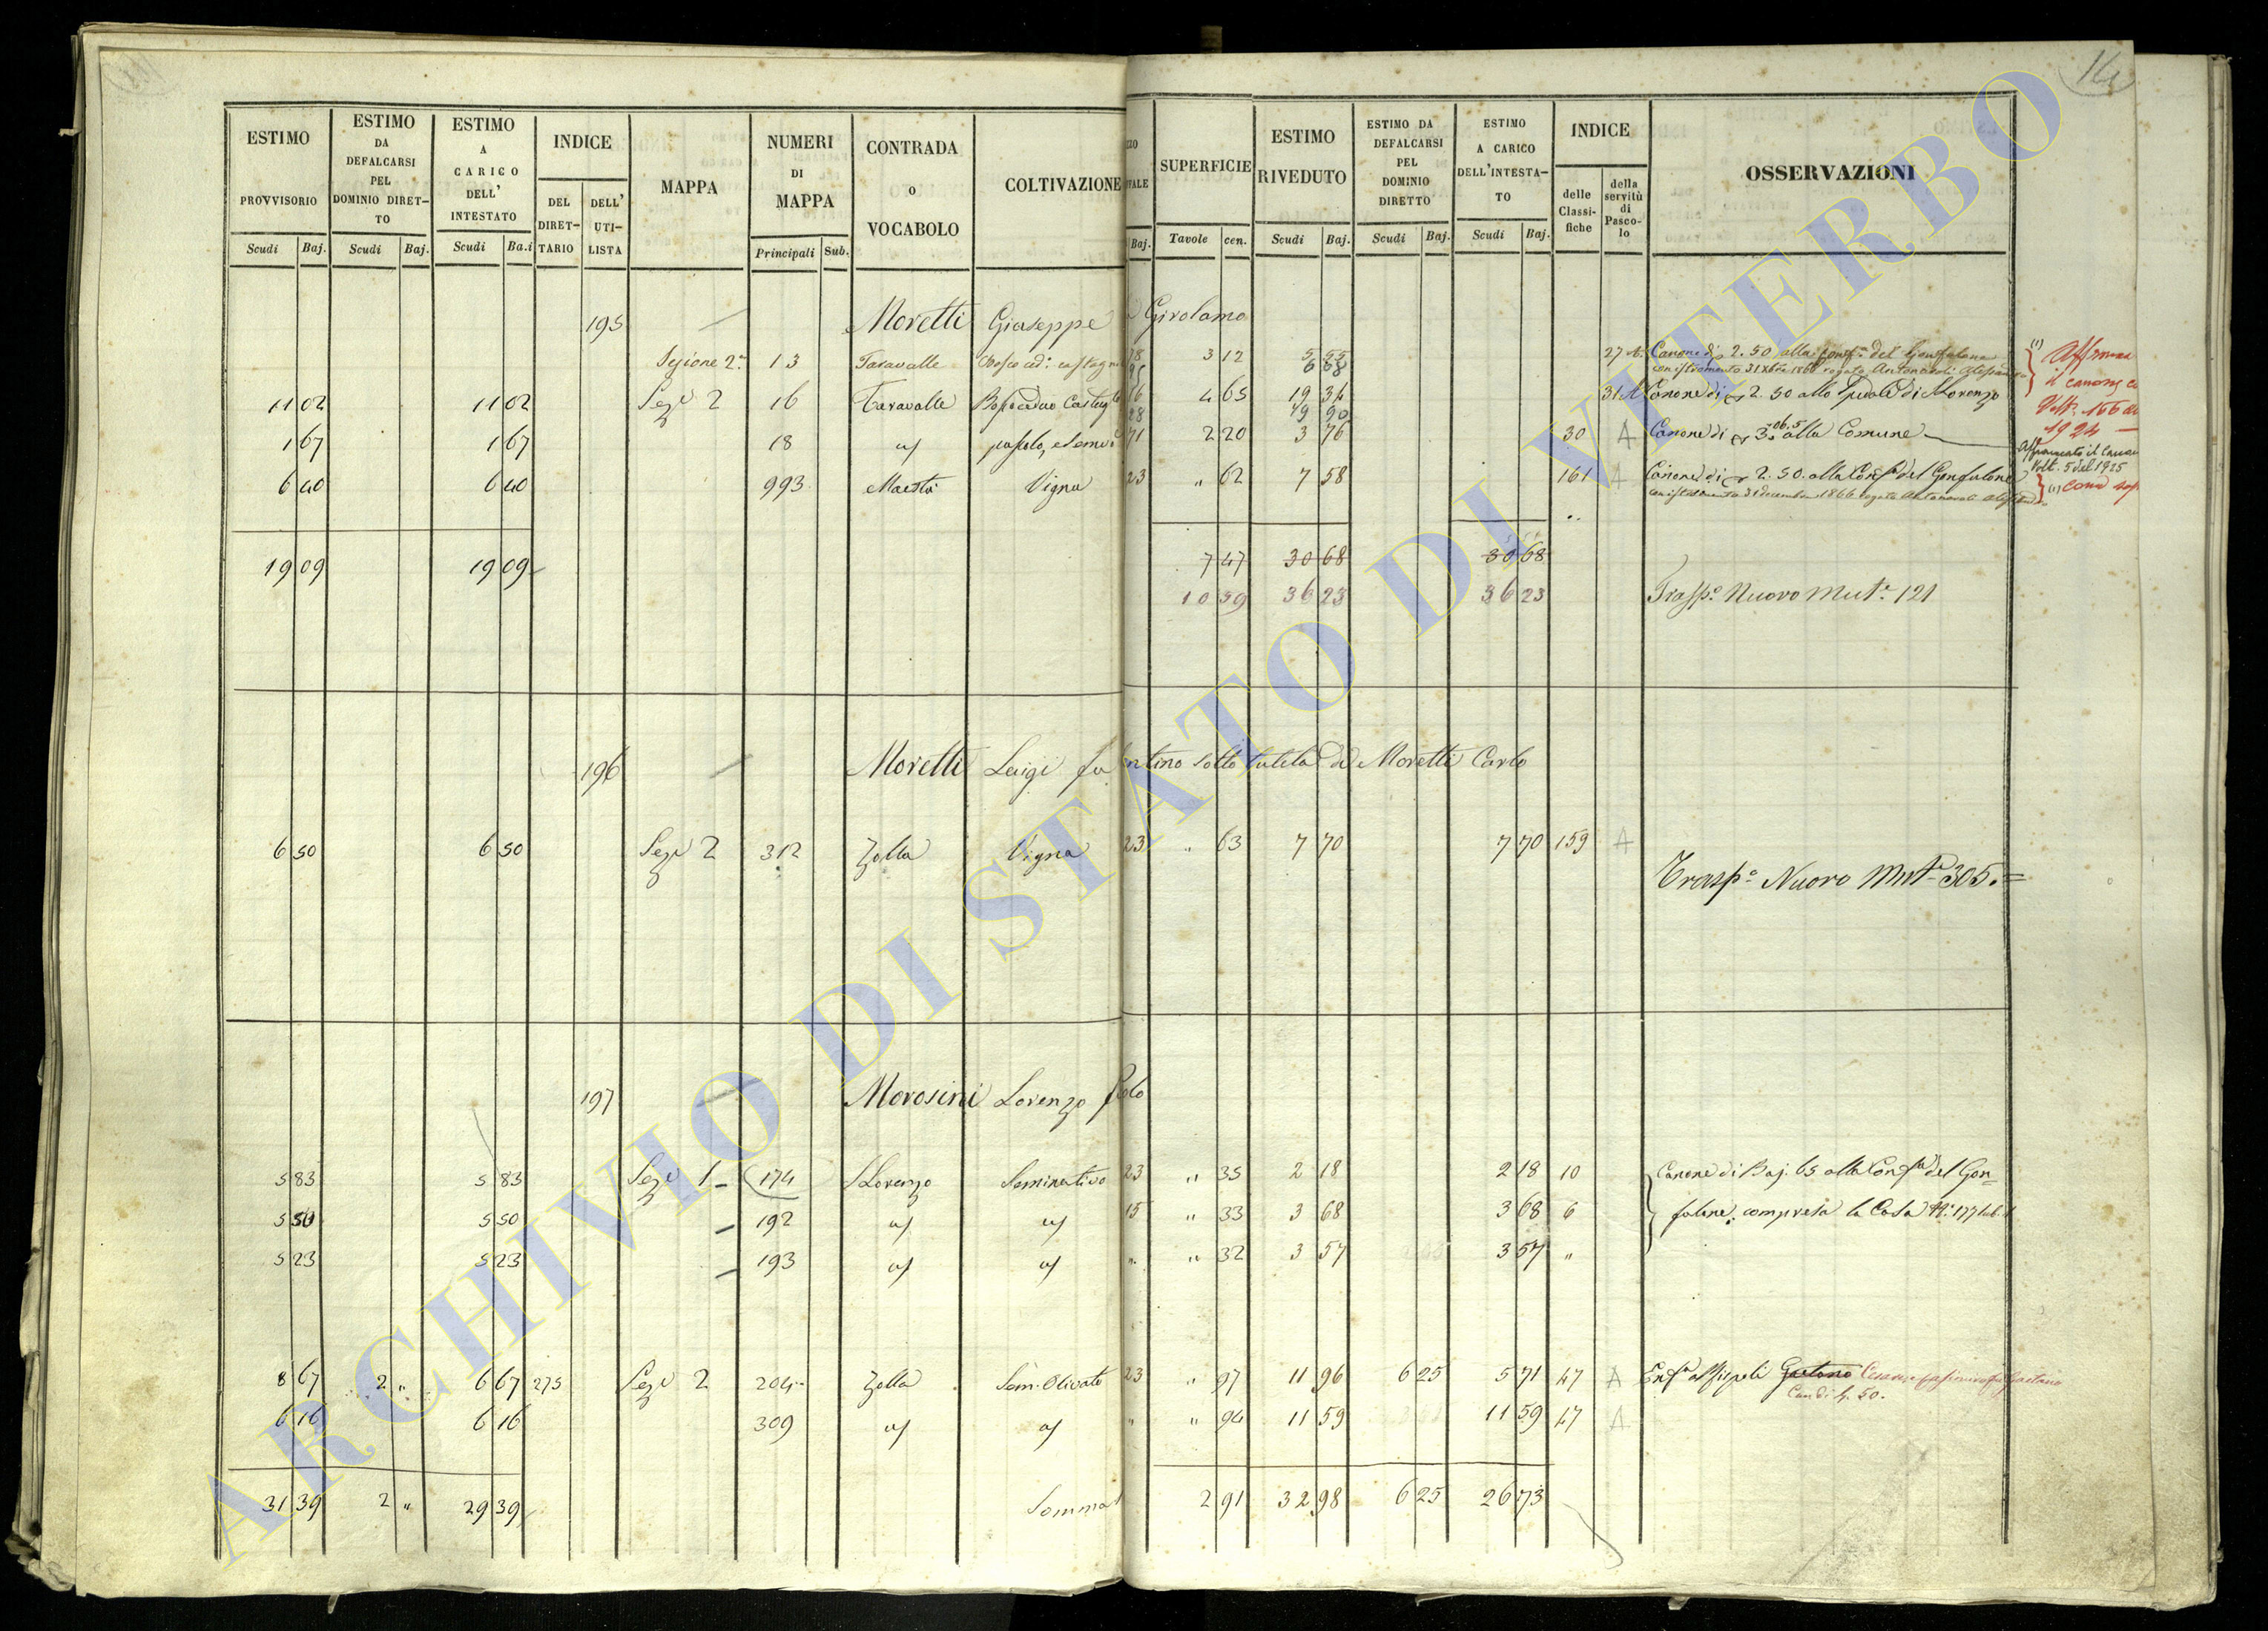 14
ESTIMO PROVVISORIO Scudi Baj. ESTIMO DA DEFALCARSI PEL DOMINIO DIRET-TO Scudi Baj. ESTIMO A CARICO DELL' INTESTATO Scudi Ba.i INDICE DEL DIRET-TARIO DELL' UTI-LISTA MAPPA NUMERI DI MAPPA Principali Sub. CONTRADA o VOCABOLO COLTIVAZIONE Baj. SUPERFICIE Tavole cen. ESTIMO RIVEDUTO Scudi Baj. ESTIMO DA DEFALCARSI PEL DOMINIO DIRETTO Scudi Baj. ESTIMO A CARICO DELL'INTESTA-TO Scudi Baj. INDICE delle Classi-fiche della servitù di Pasco-lo OSSERVAZIONI
195 Moretti Giuseppe Girolamo
Sezione 2.a 13 Taravalle 3 12 5 55 27 A. Canone di 2.50 alla Conf.a del Gonfalone
6 68
11 02 11 02 Sez.e 2 16 Taravalle 4 65 19 34 31 A Canone di 2.50 allo Spedale di S Lorenzo
19 90
1 67 1 67 18 71 2 20 3 76 30 A Canone di 3 06.5 alla Comune
6 40 6 40 993 Maestà Vigna 23 " 62 7 58 161 A Canone di 2.50 alla Conf.a del Gonfalone
(1) Affrancato il Canone
Volt. 5 del 1925
1924
19 09 19 09 7 47 30 68 30 68
10 59 36 23 36 23 Trasp.o Nuovo Mut.e 121
196 Moretti Luigi fu ntino sotto tutela di Moretti Carlo
6 50 6 50 Sez.e 2 312 Zolla Vigna 23 " 63 7 70 7 70 159 A
Trasp.o Nuovo Mut.e 305.=
197 Morosini Lorenzo
5 83 5 83 Sez.e 1 174 S Lorenzo Seminativo 23 " 35 2 18 2 18 10 Canone di Baj. 65 alla Conf.a del Gon=
5 50 5 50 192 15 " 33 3 68 3 68 6 falone, compresa la Casa N.o 177 sub. 1
5 23 5 23 193 " " 32 3 57 3 57 "
8 67 2 " 6 67 275 Sez.e 2 204 Zolla Sem. Olivato 23 " 97 11 96 6 25 5 71 47 A Gaetano
6 16 6 16 309 " " 94 11 59 11 59 47 A
31 39 2 " 29 39 Somma 2 91 32 98 6 25 26 73
ARCHIVIO DI STATO DI VITERBO